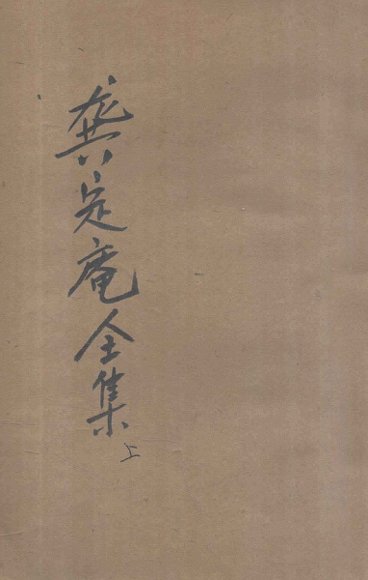 龚定庵全集
上